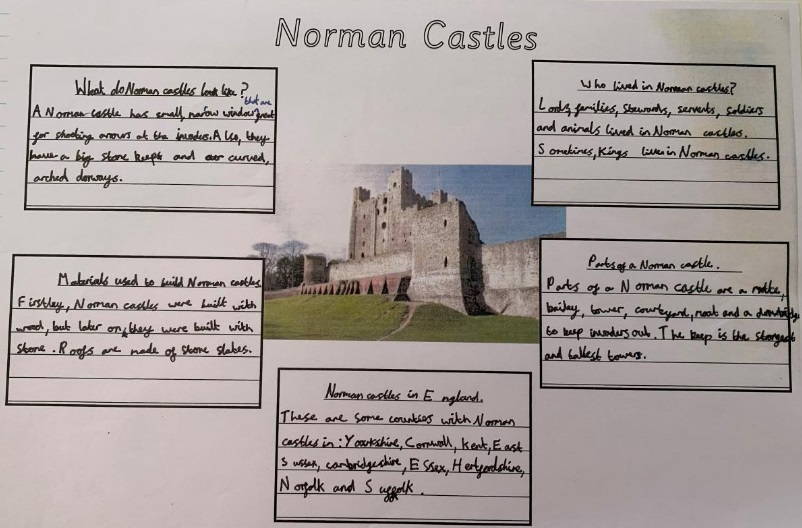 Norman Castles
What do Norman castles look like?
that are
A Norman castle has small, narow window great
for shooting arrows at the invaders. Also, they
have a big stone keeps and curved,
arched dorways.
Who lived in Norman castles?
Lords, families, Stewards, servents, soldiers
and animals lived in Norman castles.
Sometimes, Kings lives in Norman castles.
Materials used to build Norman castles.
Firstley, Norman castles were built with
wood, but later on, they were built with
stone. Roofs are made of stone slates.
Parts of a Norman castle.
Parts of a Norman castle are a motte,
bailey, tower, courtyard, moat and a drawbridge
to keep invaders out. The keep is the strongest
and tallest towers.
Norman castles in England.
These are some counties with Norman
castles in: Yoarkshire, Cornwoll, Kent, East
Sussex, cambridgeshire, Essex, Hertfordshire,
Norfolk and Suffolk.